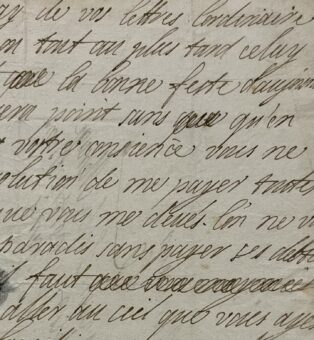 de vos lettres lordinaire
on tout au plus tard celuy
que la bonne feste daujour
point sans que qu'en
votre consience vous ne
solution de me payer toutes
que vous me deues. lon ne va
paradis sans payer ses dette
il faut
aller au ciel que vous ayes